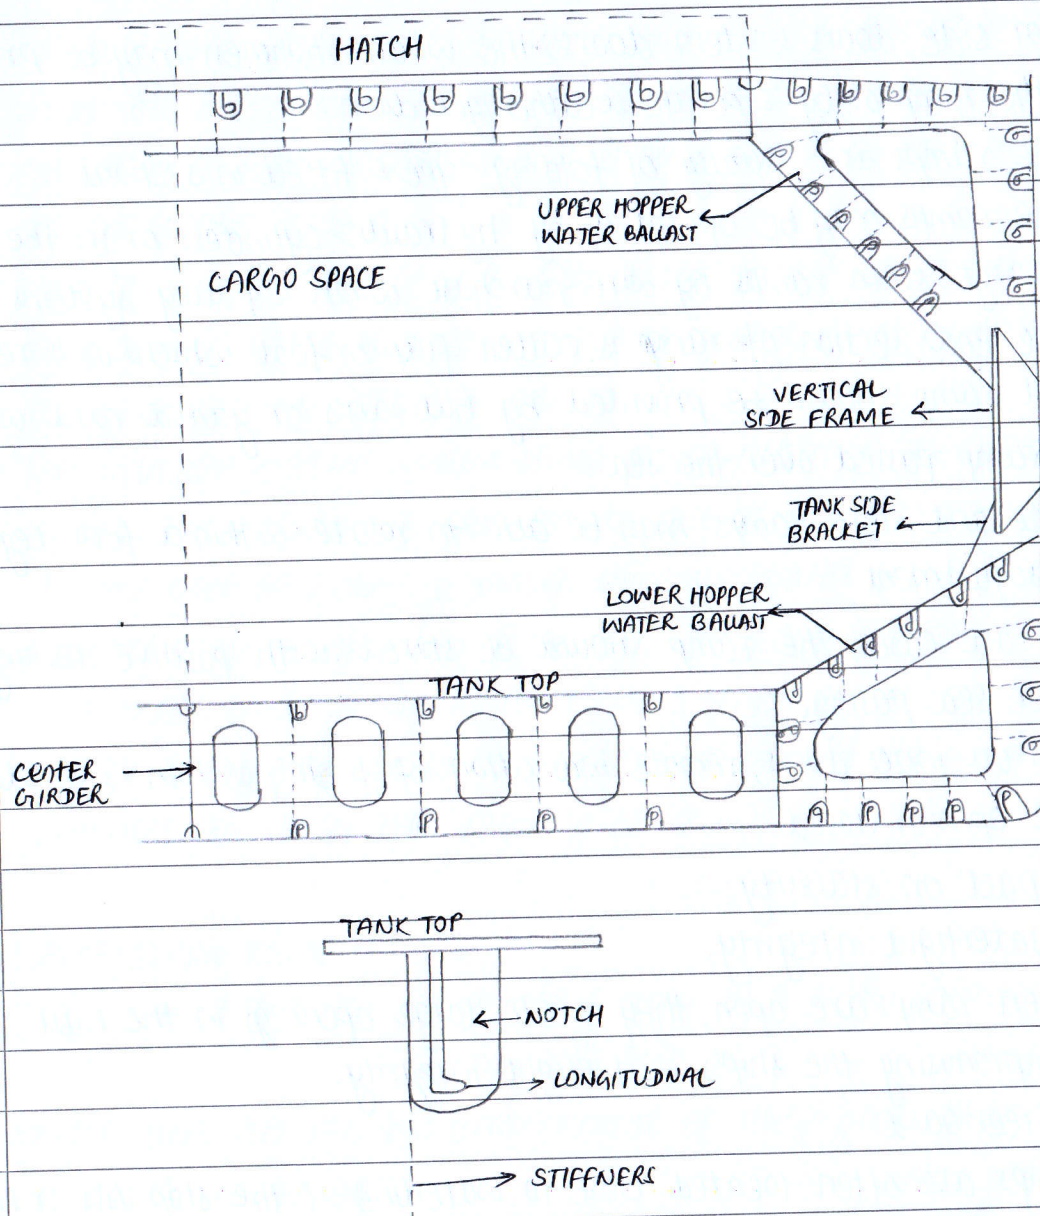 HATCH
UPPER HOPPER
WATER BALLAST
CARGO SPACE
VERTICAL
SIDE FRAME
TANK SIDE
BRACKET
LOWER HOPPER
WATER BALLAST
TANK TOP
CENTER
GIRDER
TANK TOP
NOTCH
LONGITUDNAL
STIFFNERS